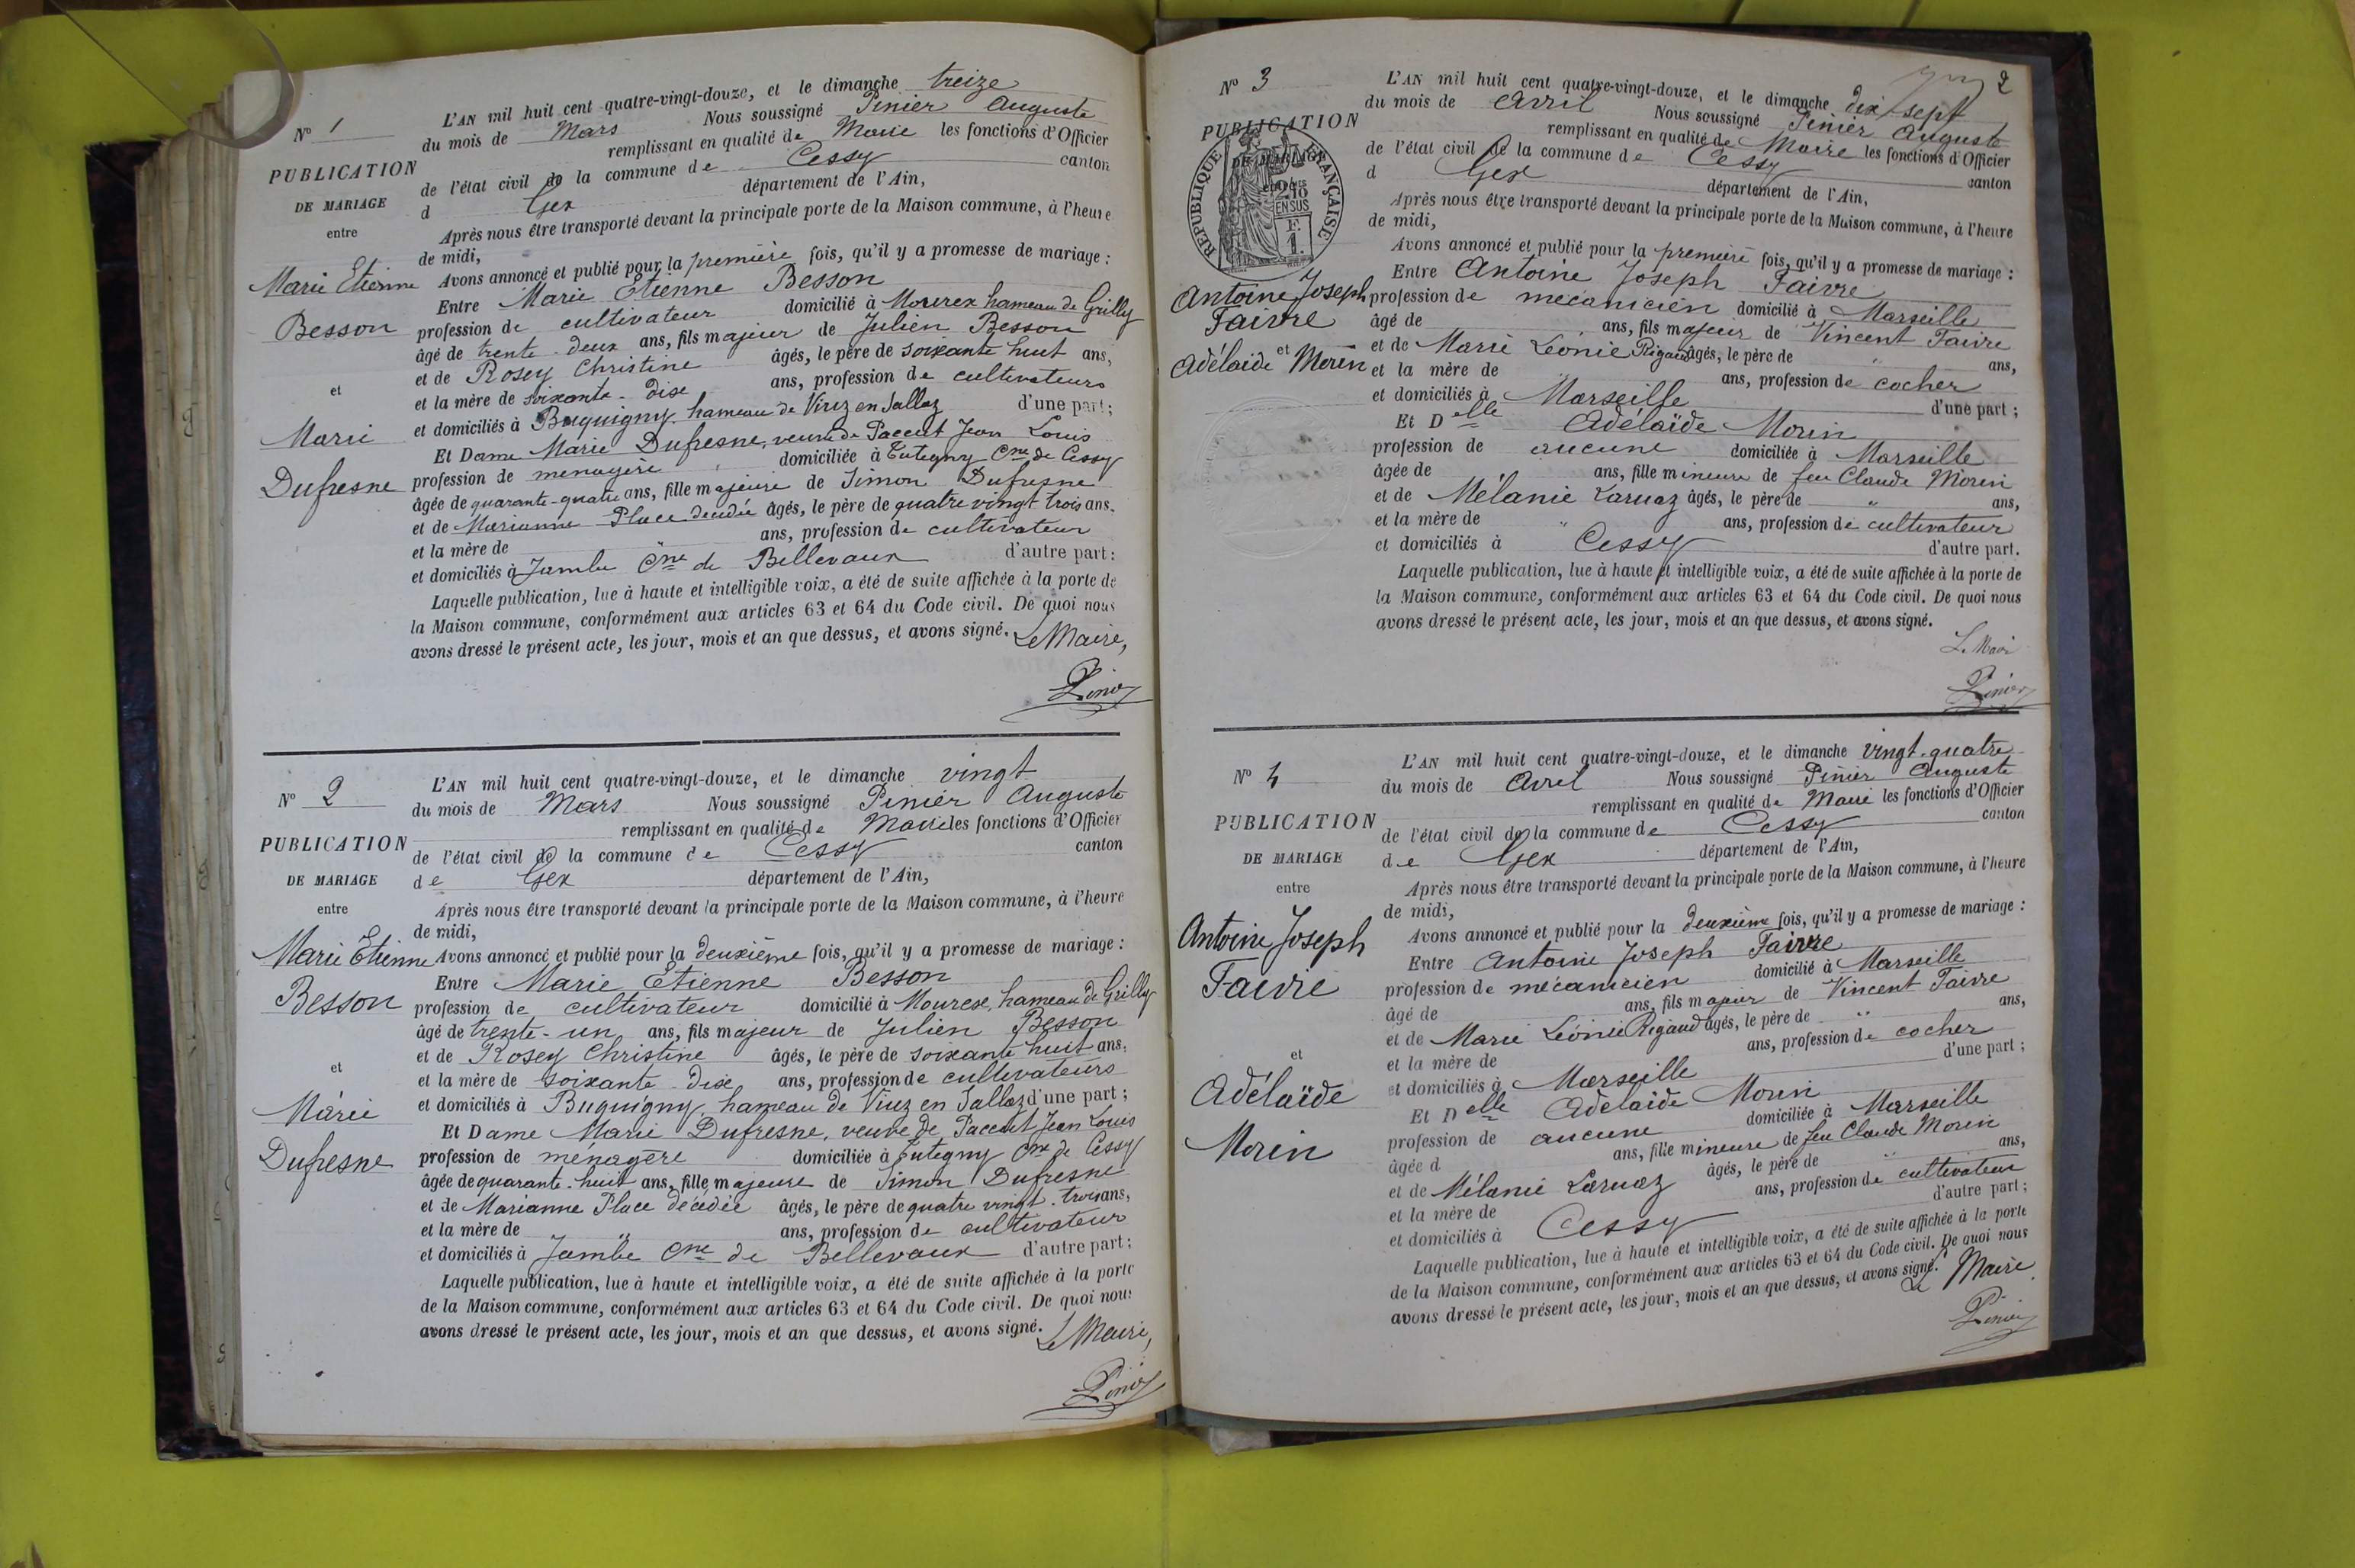 N° 1
PUBLICATION
DE MARIAGE
entre
Marie Etienne
Besson
et
Marie
Dufresne
L'AN mil huit cent quatre-vingt-douze, et le dimanche treize
du mois de Mars Nous soussigné Pinier Auguste
remplissant en qualité de Maire les fonctions d'Officier
de l'état civil de la commune de Cessy canton
d Gex département de l'Ain,
Après nous être transporté devant la principale porte de la Maison commune, à l'heure
de midi,
Avons annoncé et publié pour la première fois, qu'il y a promesse de mariage :
Entre Marie Etienne Besson
profession de cultivateur domicilié à Mourex hameau de Grilly
âgé de trente-deux ans, fils majeur de Julien Besson
et de Rosey Christine âgés, le père de soixante huit ans,
et la mère de soixante-dise ans, profession de cultivateurs
et domiciliés à Buquigny hameau de Viuz en Sallaz d'une part;
Et Dame Marie Dufresne, veuve de Paccut Jean Louis
profession de menagère domiciliée à Tutegny Cne de Cessy
âgée de quarante-quatre ans, fille majeure de Simon Dufresne
et de Marianne Place décédée âgés, le père de quatre vingt trois ans.
et la mère de " ans, profession de cultivateur
et domiciliés à Jambe Cne de Bellevaux d'autre part:
Laquelle publication, lue à haute et intelligible voix, a été de suite affichée à la porte de
la Maison commune, conformément aux articles 63 et 64 du Code civil. De quoi nous
avons dressé le présent acte, les jour, mois et an que dessus, et avons signé. Le Maire,
Pinier
N° 2
PUBLICATION
DE MARIAGE
entre
Marie Etienne
Besson
et
Marie
Dufresne
L'AN mil huit cent quatre-vingt-douze, et le dimanche vingt
du mois de Mars Nous soussigné Pinier Auguste
remplissant en qualité de Maire les fonctions d'Officier
de l'état civil de la commune de Cessy canton
de Gex département de l'Ain,
Après nous être transporté devant la principale porte de la Maison commune, à l'heure
de midi,
Avons annoncé et publié pour la deuxième fois, qu'il y a promesse de mariage :
Entre Marie Etienne Besson
profession de cultivateur domicilié à Mourex, hameau de Grilly
âgé de trente-un ans, fils majeur de Julien Besson
et de Rosey Christine âgés, le père de soixante huit ans,
et la mère de soixante-dise ans, profession de cultivateurs
et domiciliés à Buquigny, hameau de Viuz en Sallaz d'une part;
Et Dame Marie Dufresne, veuve de Paccut Jean Louis
profession de menagère domiciliée à Tutegny Cne de Cessy
âgée de quarante-huit ans, fille majeure de Simon Dufresne
et de Marianne Place décédée âgés, le père de quatre vingt-trois ans,
et la mère de " ans, profession de cultivateur
et domiciliés à Jambe Cne de Bellevaux d'autre part;
Laquelle publication, lue à haute et intelligible voix, a été de suite affichée à la porte
de la Maison commune, conformément aux articles 63 et 64 du Code civil. De quoi nous
avons dressé le présent acte, les jour, mois et an que dessus, et avons signé. Le Maire,
Pinier
2
N° 3
PUBLICATION
DE MARIAGE
RÉPUBLIQUE FRANÇAISE
2/10
EN SUS
F.
1.
Antoine Joseph
Faivre
et
Adélaïde Morin
L'AN mil huit cent quatre-vingt-douze, et le dimanche dix-sept
du mois de Avril Nous soussigné Pinier Auguste
remplissant en qualité de Maire les fonctions d'Officier
de l'état civil de la commune de Cessy canton
d Gex département de l'Ain,
Après nous être transporté devant la principale porte de la Maison commune, à l'heure
de midi,
Avons annoncé et publié pour la première fois, qu'il y a promesse de mariage :
Entre Antoine Joseph Faivre
profession de mécanicien domicilié à Marseille
âgé de ans, fils majeur de Vincent Faivre
et de Marie Léonie Rigaud âgés, le père de " ans,
et la mère de ans, profession de cocher
et domiciliés à Marseille d'une part ;
Et Delle Adélaïde Morin
profession de aucune domiciliée à Marseille
âgée de ans, fille mineure de feu Claude Morin
et de Mélanie Larnaz âgés, le père de " ans,
et la mère de " ans, profession de cultivateur
et domiciliés à Cessy d'autre part.
Laquelle publication, lue à haute et intelligible voix, a été de suite affichée à la porte de
la Maison commune, conformément aux articles 63 et 64 du Code civil. De quoi nous
avons dressé le présent acte, les jour, mois et an que dessus, et avons signé.
Le Maire
Pinier
N° 4
PUBLICATION
DE MARIAGE
entre
Antoine Joseph
Faivre
et
Adélaïde
Morin
L'AN mil huit cent quatre-vingt-douze, et le dimanche vingt-quatre
du mois de Avril Nous soussigné Pinier Auguste
remplissant en qualité de Maire les fonctions d'Officier
de l'état civil de la commune de Cessy canton
de Gex département de l'Ain,
Après nous être transporté devant la principale porte de la Maison commune, à l'heure
de midi,
Avons annoncé et publié pour la deuxième fois, qu'il y a promesse de mariage :
Entre Antoine Joseph Faivre
profession de mécanicien domicilié à Marseille
âgé de ans, fils majeur de Vincent Faivre
et de Marie Léonie Rigaud âgés, le père de " ans,
et la mère de ans, profession de cocher
et domiciliés à Marseille d'une part ;
Et Delle Adélaïde Morin
profession de aucune domiciliée à Marseille
âgée d ans, fille mineure de feu Claude Morin
et de Mélanie Larnaz âgés, le père de " ans,
et la mère de ans, profession de cultivateur
et domiciliés à Cessy d'autre part;
Laquelle publication, lue à haute et intelligible voix, a été de suite affichée à la porte
de la Maison commune, conformément aux articles 63 et 64 du Code civil. De quoi nous
avons dressé le présent acte, les jour, mois et an que dessus, et avons signé. Le Maire
Pinier